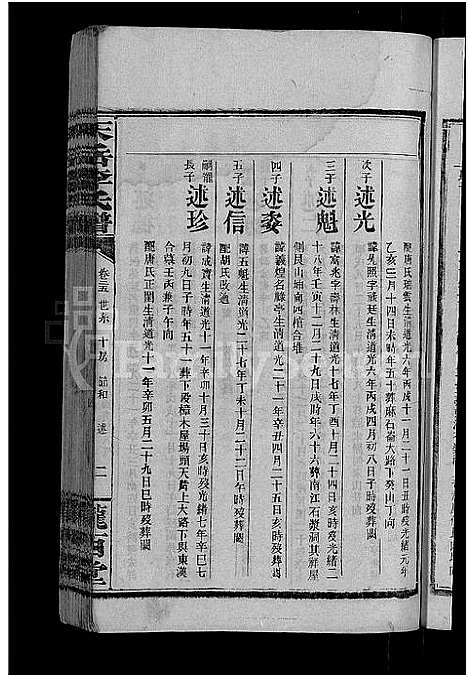 配唐氏瑞雲生清道光六年丙戌十二月二十一日丑時歿光緒元年
乙亥三月十四日未時年五十葬麻石崙大路丁癸山丁向
次子 述光
諱先照字 生清道光六年丙戌四月初八日子時歿葬闕
三子 述魁
諱富兆字壽林生清道光十七年丁酉十月二十四日亥時歿光緒二
十八年壬寅十二月二十九日戌時年六十六葬南江石漿洞其祥屋
側艮山坤向四棺合堆
四子 述姿
諱義煌名祿亭生清道光二十一年辛丑四月二十五日亥時歿葬闕
五子 述信
諱五魁生清道光二十七年丁未十月二十二日午時歿葬闕
配胡氏改適
嗣瓏長子 述珍
諱成寶生清道光十一年辛卯十月三十日亥時歿光緒七年辛巳七
月初九日子時年五十一葬下段樟木屋場頭天膂上大路下與東漢
合墓壬丙兼子午向
配唐氏正閨生清道光十一年辛卯五月二十九日巳時歿葬闕
天岳李氏譜
卷三五 世系 十房 詔和 述 二
隴西堂